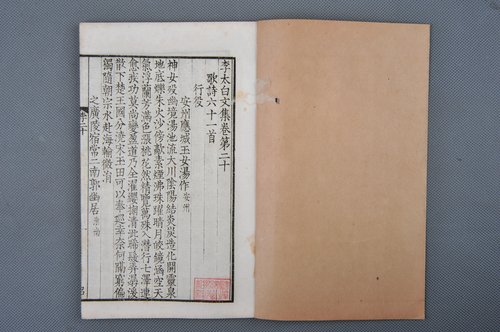 李太白文集卷第二十
歌詩六十一首
行役
安州應城玉女湯作 安州
神女歿幽境湯池流大川陰陽結炎炭造化開靈泉
地底爍朱火沙傍歊素煙沸珠躍晴月皎鏡涵空天
氣浮蘭芳滿色漲桃花然精覽萬殊入潛行七澤連
愈疾功莫尚變盈道乃全濯纓掬清泚晞髮弄潺湲
散下楚王國分澆宋玉田可以奉巡幸奈何隔窮偏
獨隨朝宗水赴海輸微涓
之廣陵宿常二南郭幽居